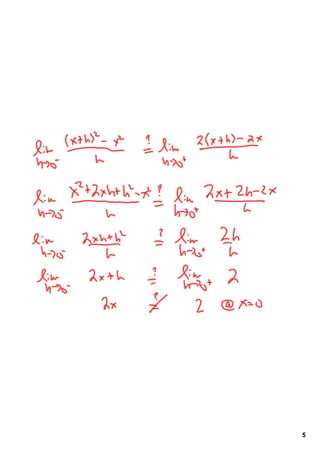 lim h→0⁻ ((x+h)² - x²)/h ≟ lim h→0⁺ (2(x+h) - 2x)/h
lim h→0⁻ (x²+2xh+h²-x²)/h ≟ lim h→0⁺ (2x+2h-2x)/h
lim h→0⁻ (2xh+h²)/h ≟ lim h→0⁺ 2h/h
lim h→0⁻ 2x+h ≟ lim h→0⁺ 2
2x ≠? 2 @ x=0
5